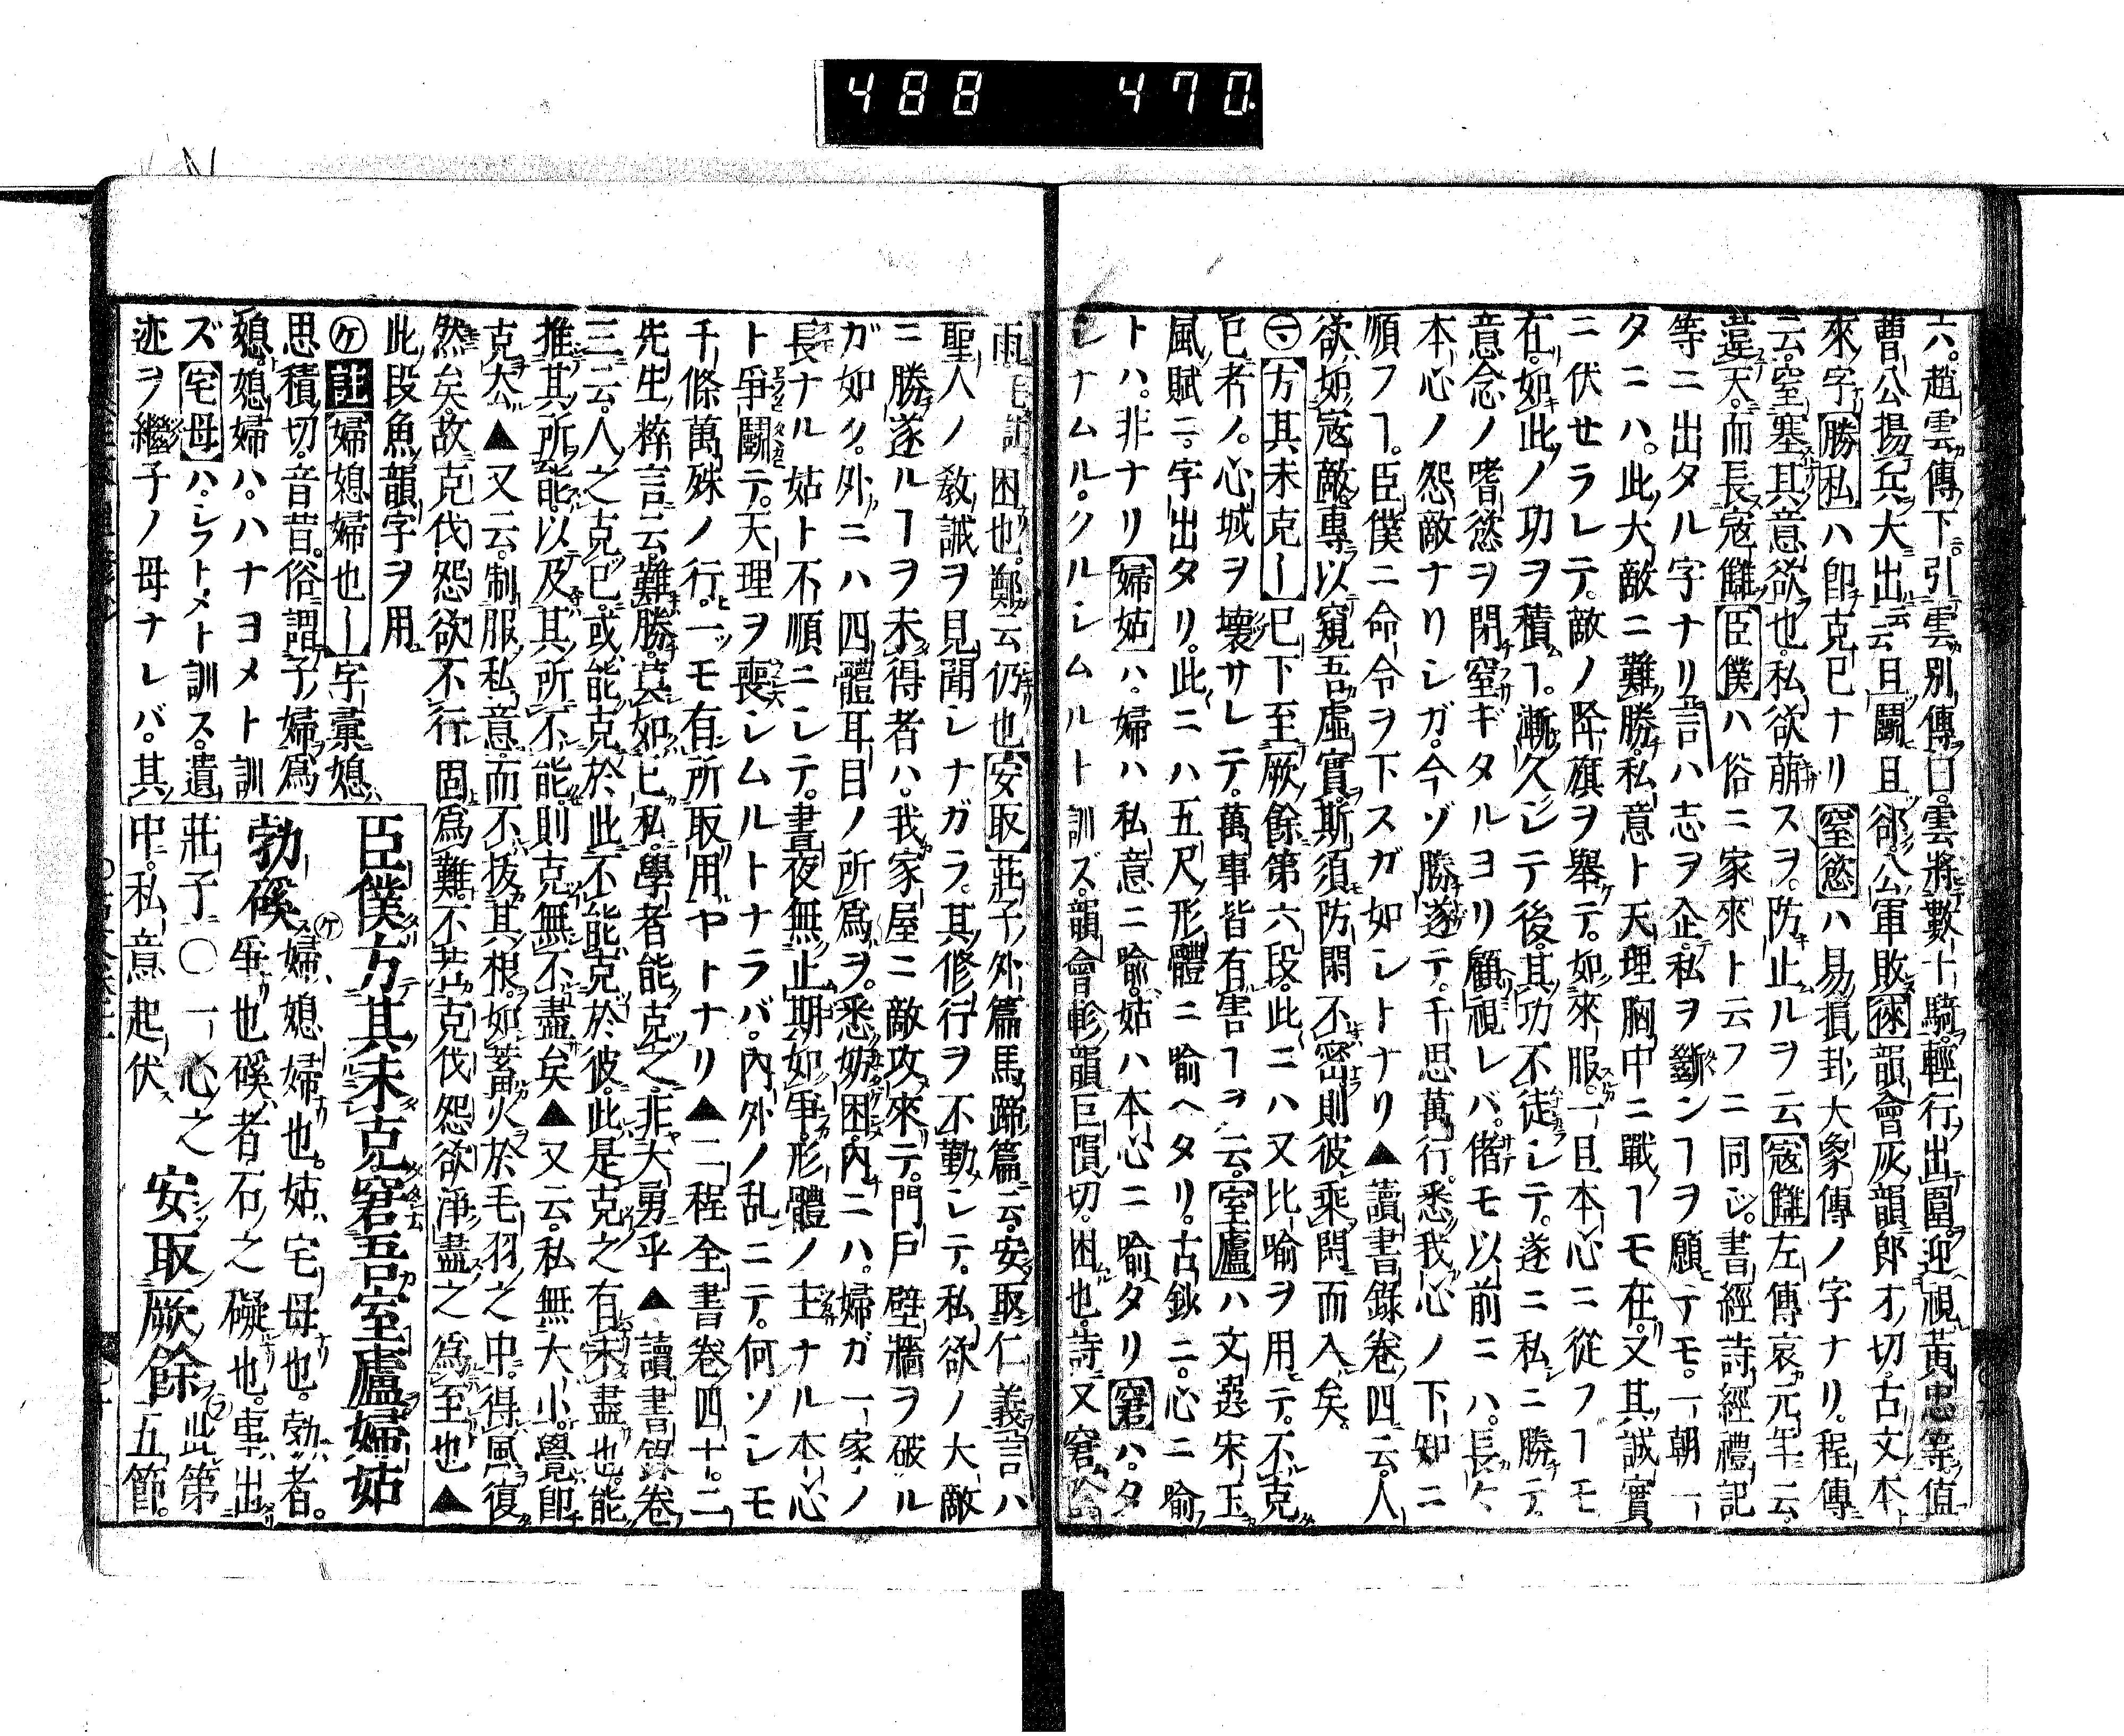 488 470
六。趙雲傳下。引雲別傳曰。雲將數十騎。輕行出圍。迎視黃忠等。值
曹公揚兵大出云云。且鬪且郤。公軍敗徠韻會灰韻郎才切。古文本
來字勝私ハ即克已ナリ窒慾ハ易損卦大象傳ノ字ナリ。程傳
云。窒塞其意欲也。私欲萠スヲ。防止ルヲ云寇讎左傳哀元年云。
違天。而長寇讎臣僕ハ俗ニ家來ト云フニ同シ。書經詩經禮記
等ニ出タル字ナリ言ハ志ヲ企。私ヲ斷ンヿヲ願テモ。一朝一
タニハ。此大敵ニ難勝。私意ト天理胸中ニ戰ヿモ在。又其誠實
ニ伏セラレテ。敵ノ降旗ヲ舉テ。如來服。一旦本心ニ從フヿモ
在。如此ノ功ヲ積ヿ。漸久シテ後。其功不徒シテ。遂ニ私ニ勝テ。
意念ノ嗜慾ヲ閉窒ギタルヨリ顧視レバ。偺モ以前ニハ。長ク
本心ノ怨敵ナリシガ。今ゾ勝遂テ。千思萬行。悉我心ノ下知ニ
順フヿ。臣僕ニ命令ヲ下スガ如シトナリ▲讀書錄卷四云。人
欲如寇敵。專以窺吾虛實。斯須防閑不密則彼乘間而入矣。
㋮方其未克―已下至厥餘第六段。此ニハ又比喻ヲ用テ。不克
已者ノ。心城ヲ壞サレテ。萬事皆有害ヿヲ云。室廬ハ文選宋玉
風賦ニ。字出タリ。此ニハ五尺ノ形體ニ喻ヘタリ。古鈔ニ。心ニ喻
トハ。非ナリ婦姑ハ。婦ハ私意ニ喻。姑ハ本心ニ喻タリ窘ハ。タ
シナムル。クルシムルト訓ズ。韻會軫韻巨隕切。困也。詩又窘
困也。鄭云仍也安取莊子外篇馬蹄篇云。安取仁義言ハ
聖人ノ教誡ヲ見聞シナガラ。其修行ヲ不勤シテ。私欲ノ大敵
ニ勝遂ルヿヲ未得者ハ。我家屋ニ敵攻來テ。門戶壁牆ヲ破ル
ガ如ク。外ニハ四體耳目ノ所爲ヲ。悉妨困。內ニハ。婦ガ一家ノ
長ナル姑ト不順ニシテ。晝夜無止期如爭。形體ノ主ナル本心
ト爭鬪テ。天理ヲ喪シムルトナラバ。內外ノ乱ニテ。何ソレモ
千條萬殊ノ行。一ツモ有所取用ヤトナリ▲二程全書卷四十。二
先生粹言云。難勝莫如已私。學者能克之。非大勇乎▲讀書錄卷
三云。人之克已。或能克於此不能克於彼。此是克之有未盡也。能
推其所能。以及其所不能。則克無不盡矣▲又云。私無大小。覺即
克去▲又云。制服私意。而不拔其根。如蓄火於毛羽之中。得風復
然矣。故克伐怨欲不行固爲難。不若克伐怨欲淨盡之爲至也▲
此段魚韻字ヲ用
㋘註婦媳婦也―字彙媳
思積切。音昔。俗謂子婦爲
媳。媳婦ハ。ハナヨメト訓
ズ宅母ハ。シフトメト訓ス。遺
迹ヲ繼子ノ母ナレバ。其
臣僕方其未克窘吾室廬婦姑
勃磎㋘婦媳婦也。姑宅母也。勃者。
爭也磎者石之礙也。事出
莊子〇一心之
中。私意起伏
安取厥餘㋮此第
五節。